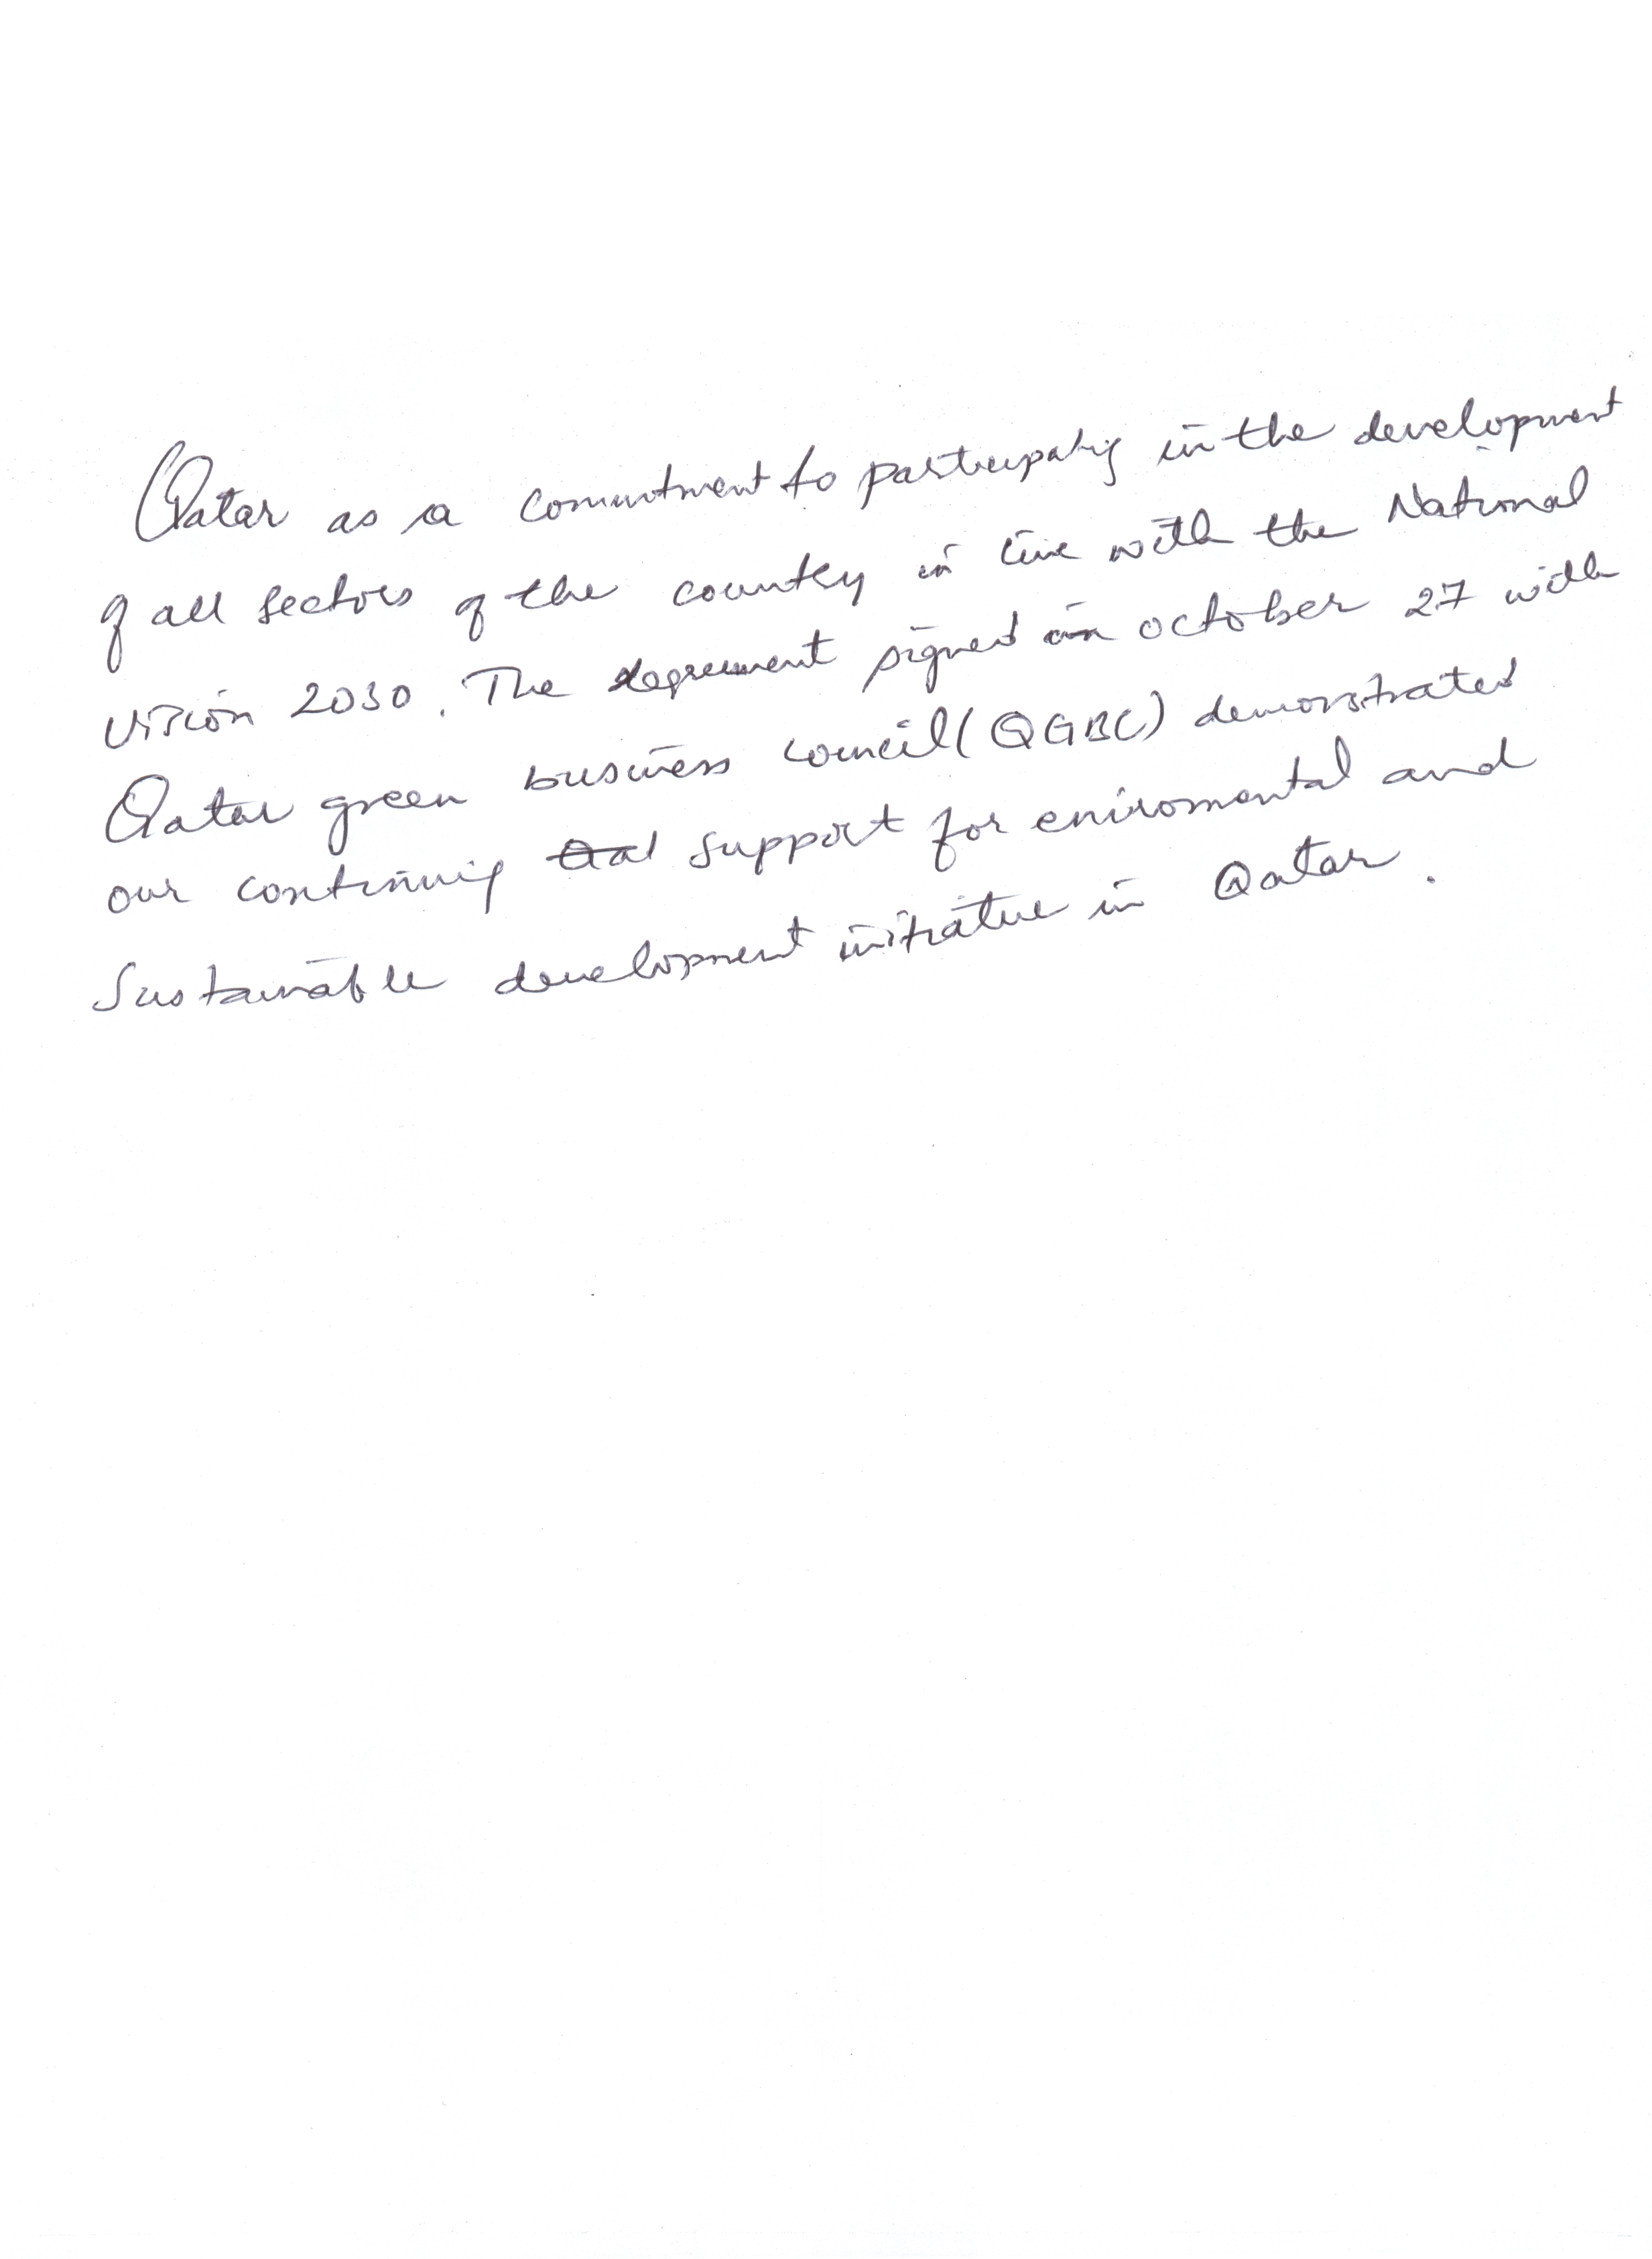 Qatar as a commitment to participating in the development
of all sectors of the country in line with the National
Vision 2030. The agreement signed on october 27 with
Qatar green business council (QGBC) demonstrated
our continuing support for eniromental and
Sustainable development initiative in Qatar.